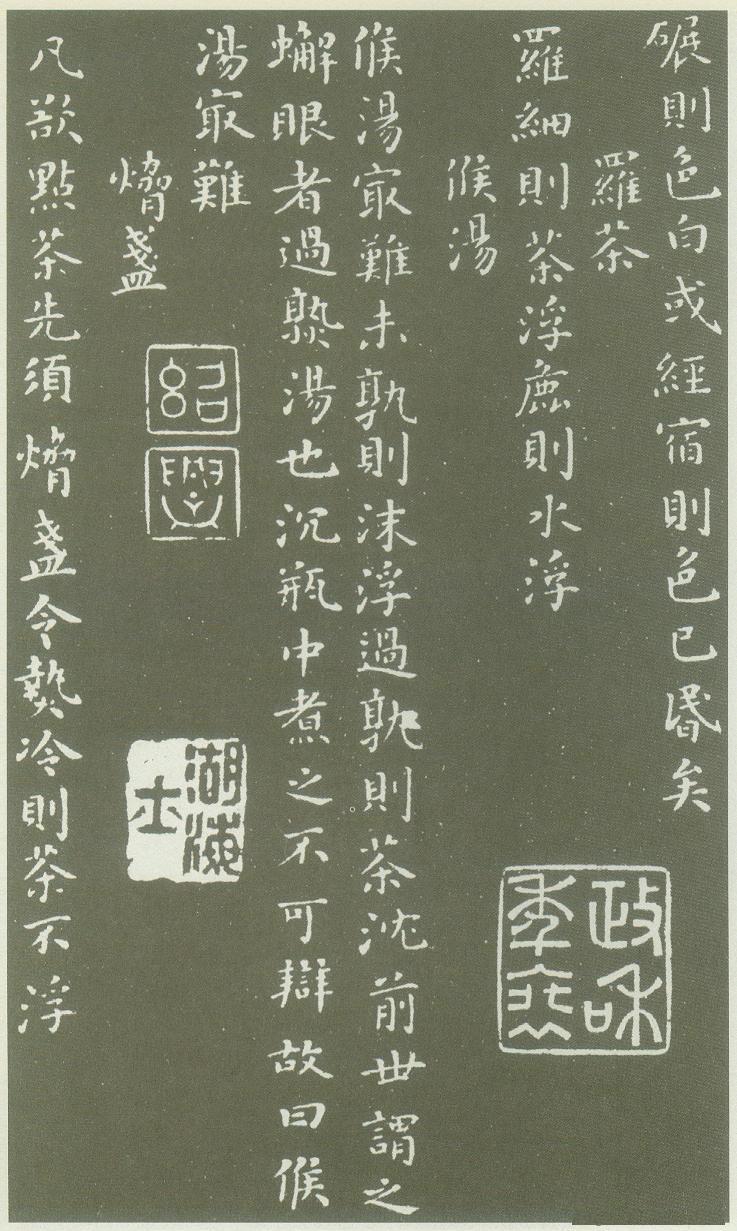 碾則色白或經宿則色已昬矣
羅茶
羅細則茶浮麁則水浮
候湯
候湯㝡難未孰則沫浮過孰則茶沈前丗謂之
蠏眼者過熟湯也沉瓶中煮之不可辯故曰候
湯㝡難
熁盞
凡欲點茶先須熁盞令𤍠冷則茶不浮
政和
紹興
湖海
士